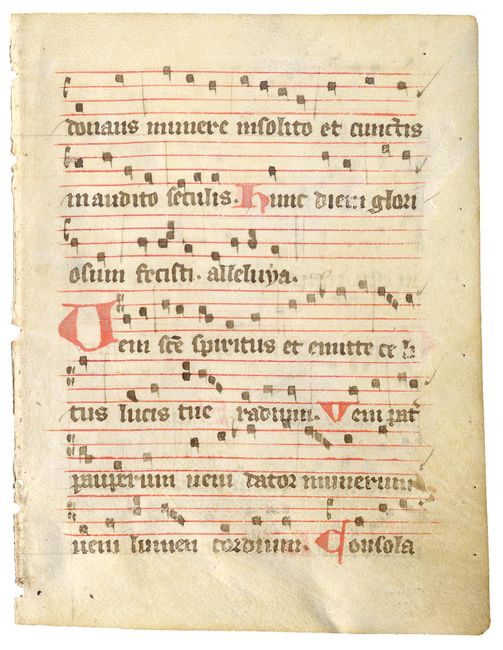 donans munere insolito et cunctis
inaudito seculis. Hunc diem glori
osum fecisti. alleluya.
Veni sc̄e spiritus et emitte celi
tus lucis tue radium. Veni pat̄
pauperum veni dator munerum
veni lumen cordium. Consola